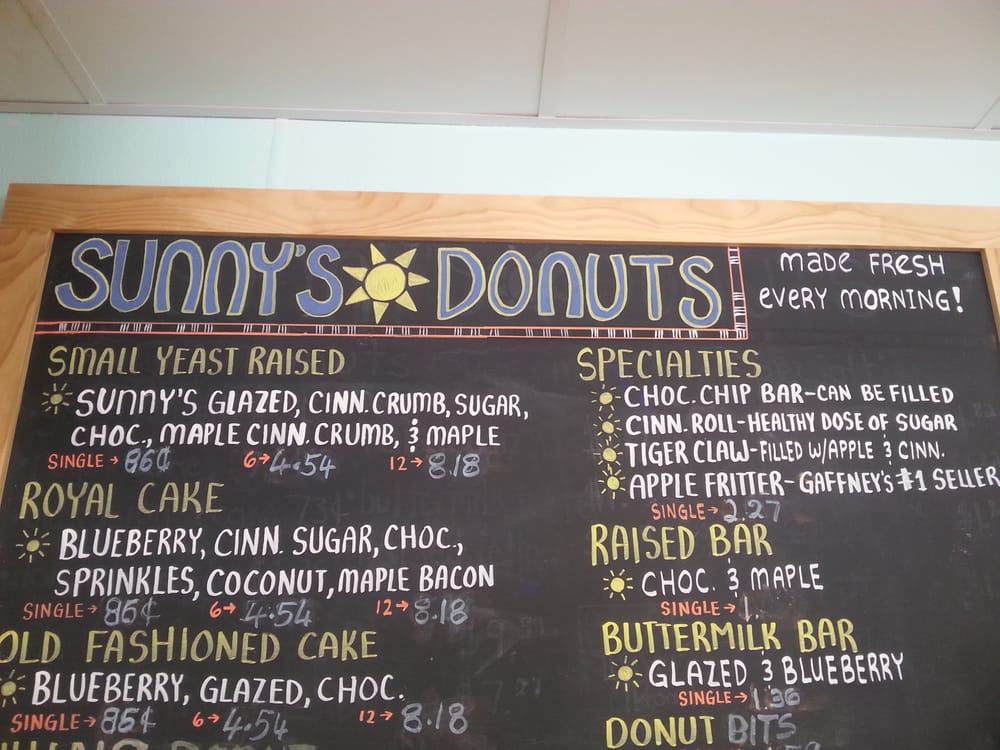 SUNNY'S DONUTS
MADE FRESH
EVERY MORNING!
SMALL YEAST RAISED
SUNNY'S GLAZED, CINN. CRUMB, SUGAR,
CHOC., MAPLE CINN. CRUMB, & MAPLE
SINGLE → 86¢ 6 → 4.54 12 → 8.18
ROYAL CAKE
BLUEBERRY, CINN. SUGAR, CHOC.,
SPRINKLES, COCONUT, MAPLE BACON
SINGLE → 86¢ 6 → 4.54 12 → 8.18
OLD FASHIONED CAKE
BLUEBERRY, GLAZED, CHOC.
SINGLE → 85¢ 6 → 4.54 12 → 8.18
SPECIALTIES
CHOC. CHIP BAR-CAN BE FILLED
CINN. ROLL-HEALTHY DOSE OF SUGAR
TIGER CLAW-FILLED W/APPLE & CINN.
APPLE FRITTER-GAFFNEY'S #1 SELLER
SINGLE → 2.27
RAISED BAR
CHOC. & MAPLE
SINGLE → 1.
BUTTERMILK BAR
GLAZED & BLUEBERRY
SINGLE → 1.36
DONUT BITS